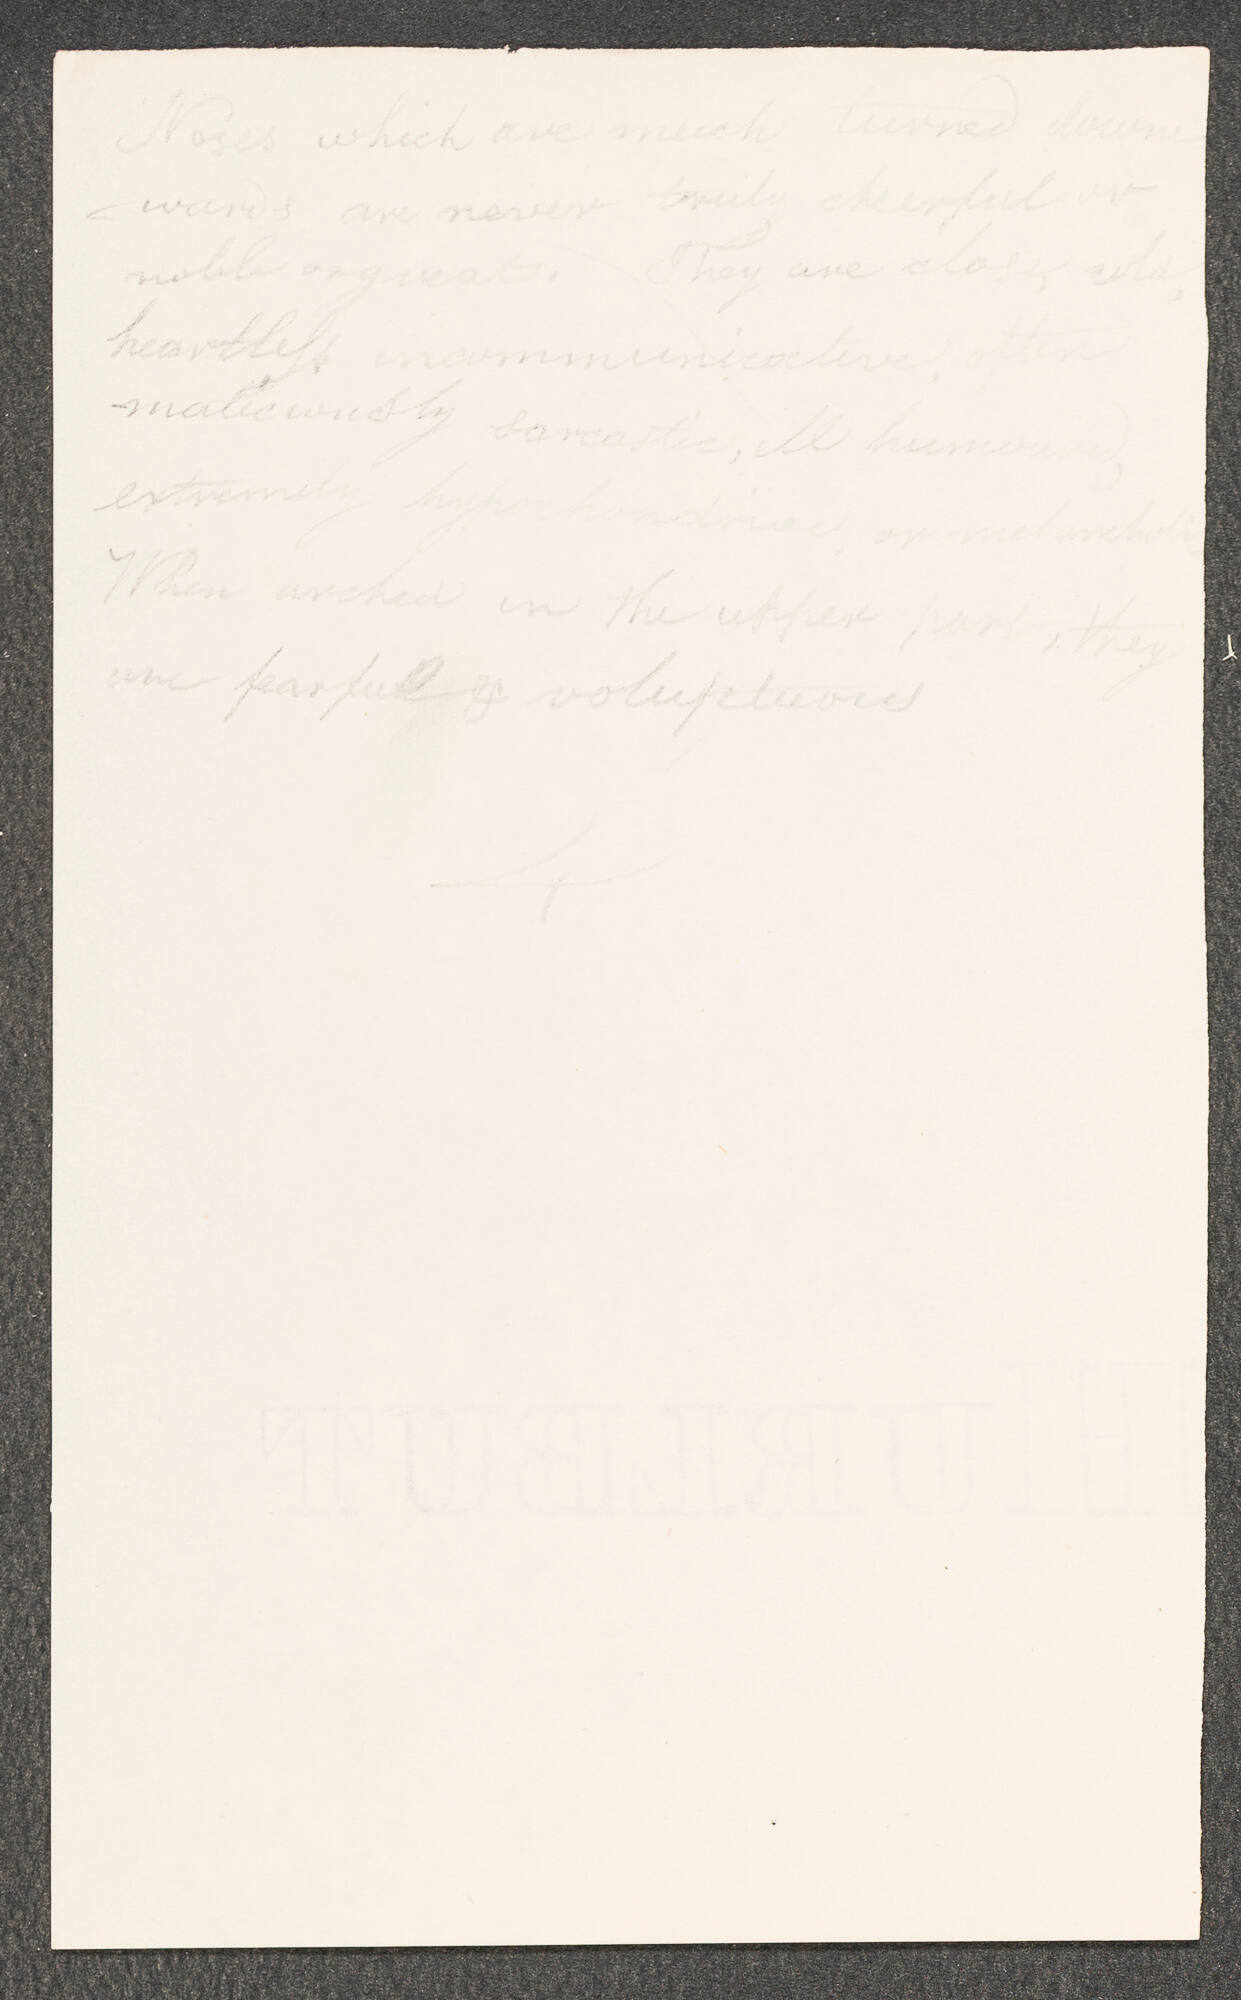 Noses which are much turned down
wards are never truly cheerful or
noble or great. They are close, cold,
heartless, incommunicative, often
maliciously sarcastic, ill humoured,
extremely hypochondriac, or melancholic
When arched in the upper part, they
are fearful & voluptuous